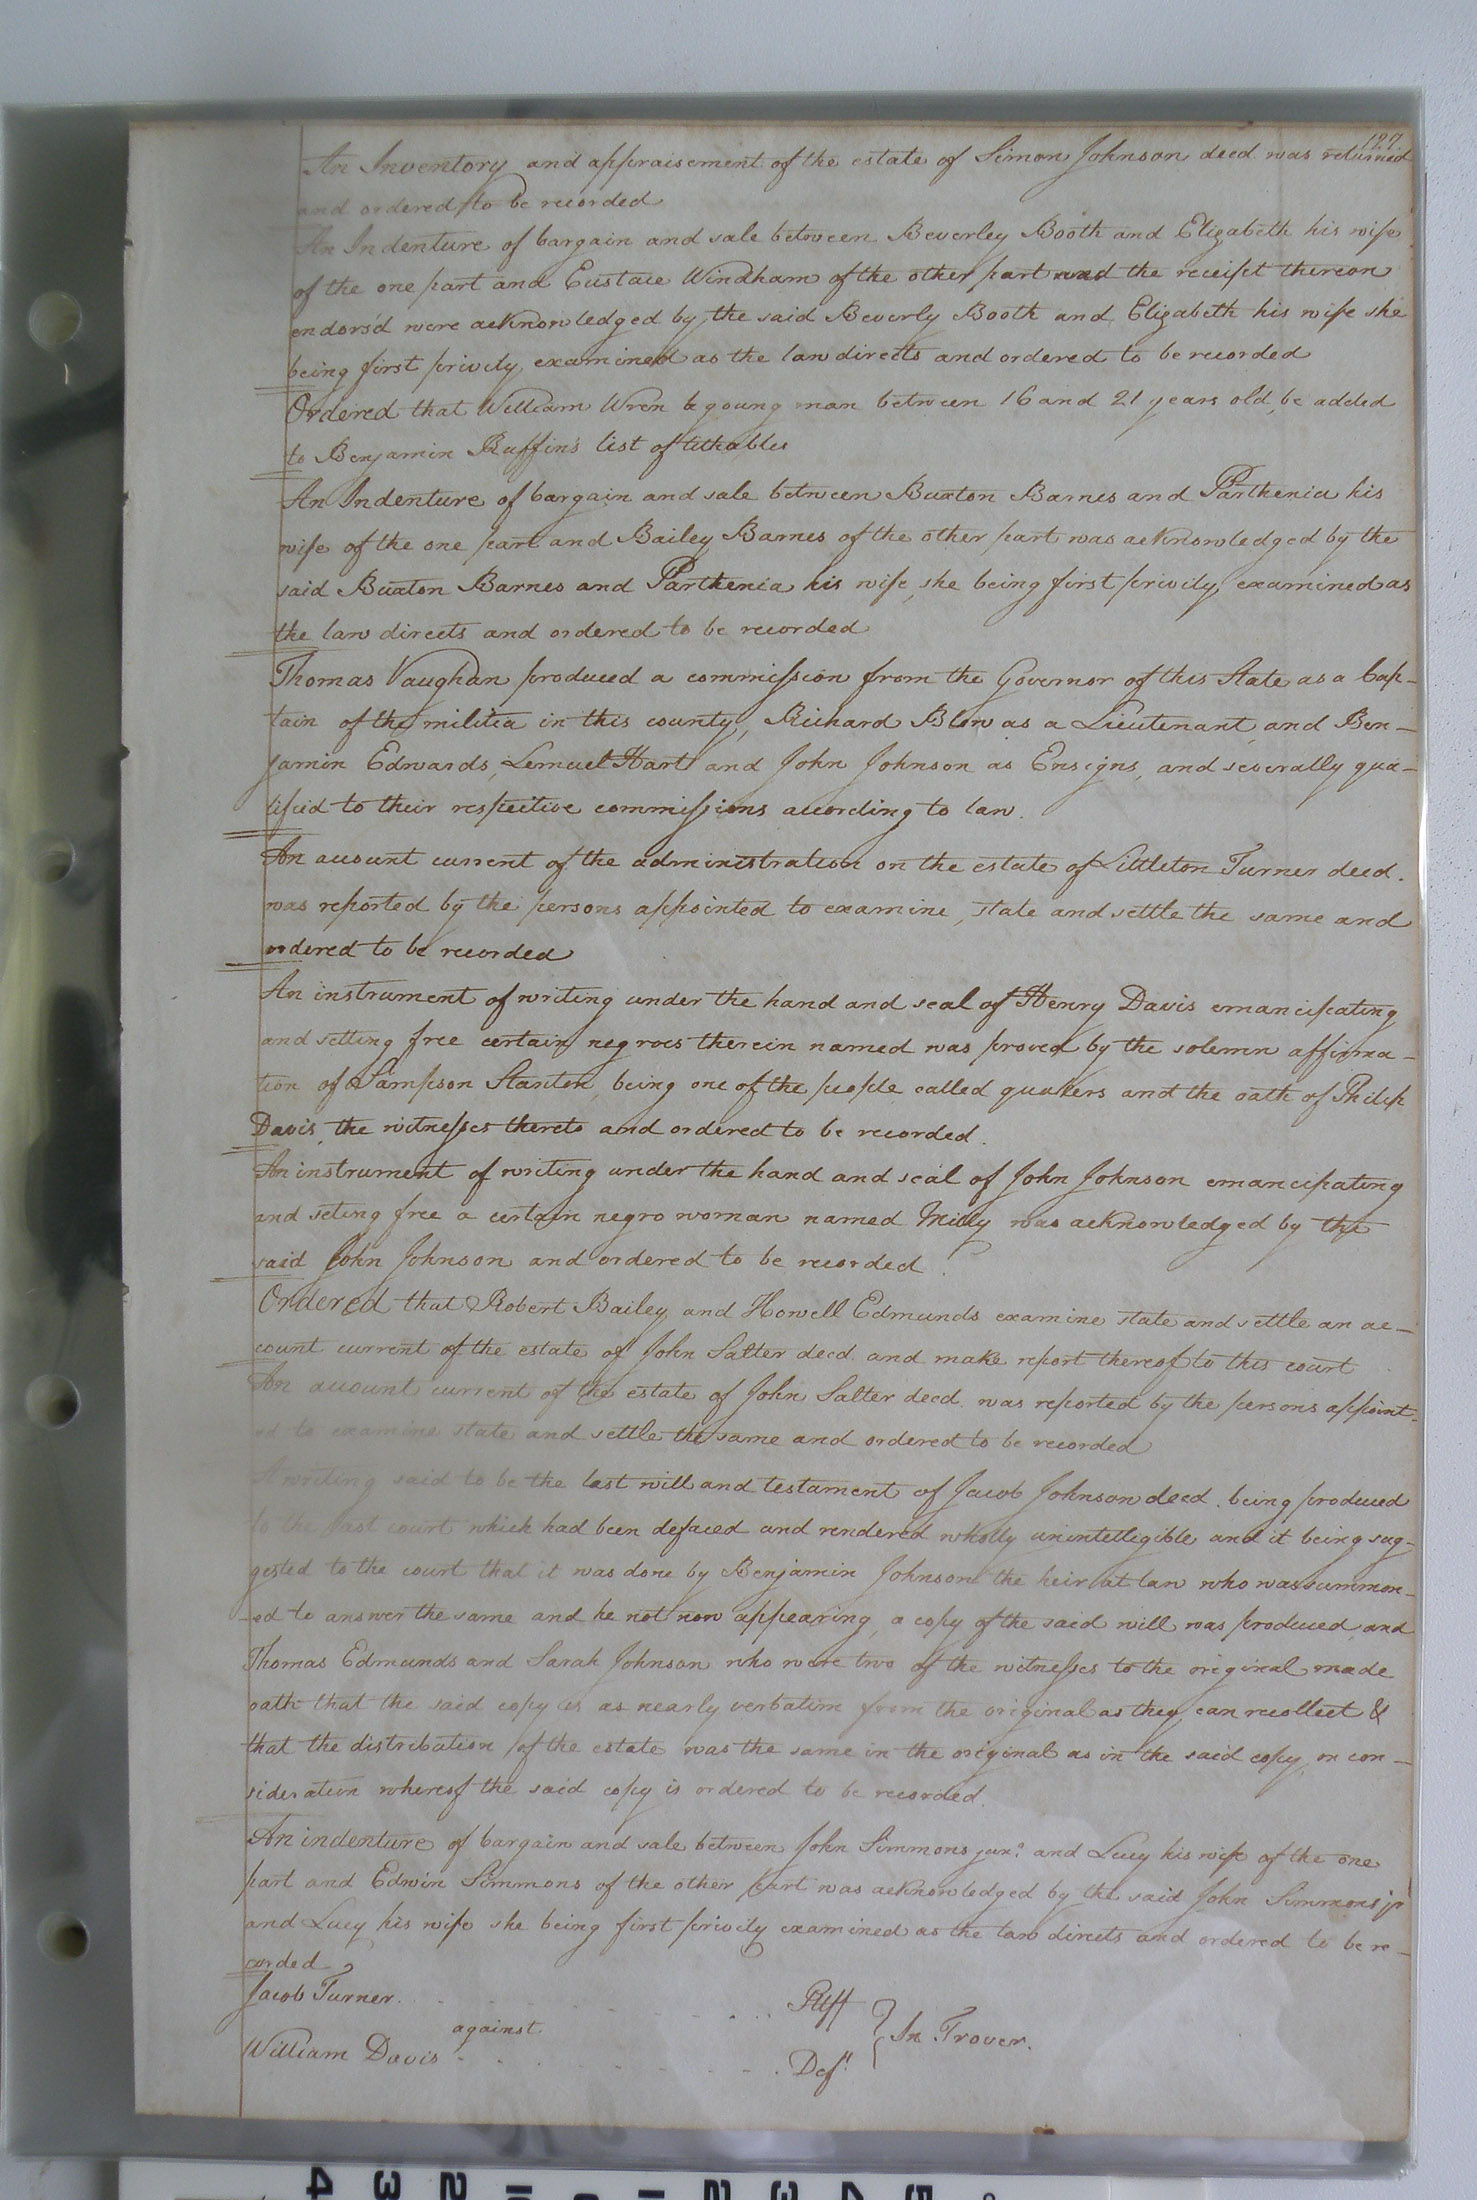 127
An Inventory and appraisement of the estate of Simon Johnson deed was returned
and ordered to be recorded
An Indenture of bargain and sale between Beverley Booth and Elizabeth his wife
of the one part and Eustace Windham of the other part and the receipt thereon
endors'd were acknowledged by the said Beverly Booth and Elizabeth his wife she
being first privily examined as the law directs and ordered to be recorded
Ordered that William Wren a young man between 16 and 21 years old, be added
to Benjamin Ruffin's list of tithables
An Indenture of bargain and sale between Buxton Barnes and Parthenia his
wife of the one part and Bailey Barnes of the other part was acknowledged by the
said Buxton Barnes and Parthenia his wife, she being first privily examined as
the law directs and ordered to be recorded
Thomas Vaughan produced a commission from the Governor of this State as a Cap-
tain of the militia in this county, Richard Blow as a Lieutenant, and Ben-
jamin Edwards, Lemuel Hart and John Johnson as Ensigns, and severally qua-
lified to their respective commissions according to law.
An account current of the administration on the estate of Littleton Turner deed.
was reported by the persons appointed to examine, state and settle the same and
ordered to be recorded
An instrument of writing under the hand and seal of Henry Davis emancipating
and setting free certain negroes therein named was proved by the solemn affirma-
tion of Sampson Stanton, being one of the people called quakers and the oath of Philip
Davis, the witnesses thereto and ordered to be recorded.
An instrument of writing under the hand and seal of John Johnson emancipating
and seting free a certain negro woman named Milly was acknowledged by the
said John Johnson and ordered to be recorded.
Ordered that Robert Bailey and Howell Edmunds examine state and settle an ac-
count current of the estate of John Salter deed. and make report thereof to this court
An account current of the estate of John Salter deed. was reported by the persons appoint-
ed to examine state and settle the same and ordered to be recorded
A writing said to be the last will and testament of Jacob Johnson deed. being produced
to the last court which had been defaced and rendered wholly unintelligible and it being sug-
gested to the court that it was done by Benjamin Johnson the heir at law who was summon-
-ed to answer the same and he not now appearing, a copy of the said will was produced, and
Thomas Edmunds and Sarah Johnson who were two of the witnesses to the original made
oath that the said copy is as nearly verbatim from the original as they can recollect &
that the distribution of the estate was the same in the original as in the said copy, on con-
sideration whereof the said copy is ordered to be recorded.
An indenture of bargain and sale between John Simmons junr. and Lucy his wife of the one
part and Edwin Simmons of the other part was acknowledged by the said John Simmons jr
and Lucy his wife she being first privily examined as the law directs and ordered to be re-
corded
Jacob Turner. Pltff
against } In Trover.
William Davis Deft.
4 3 2